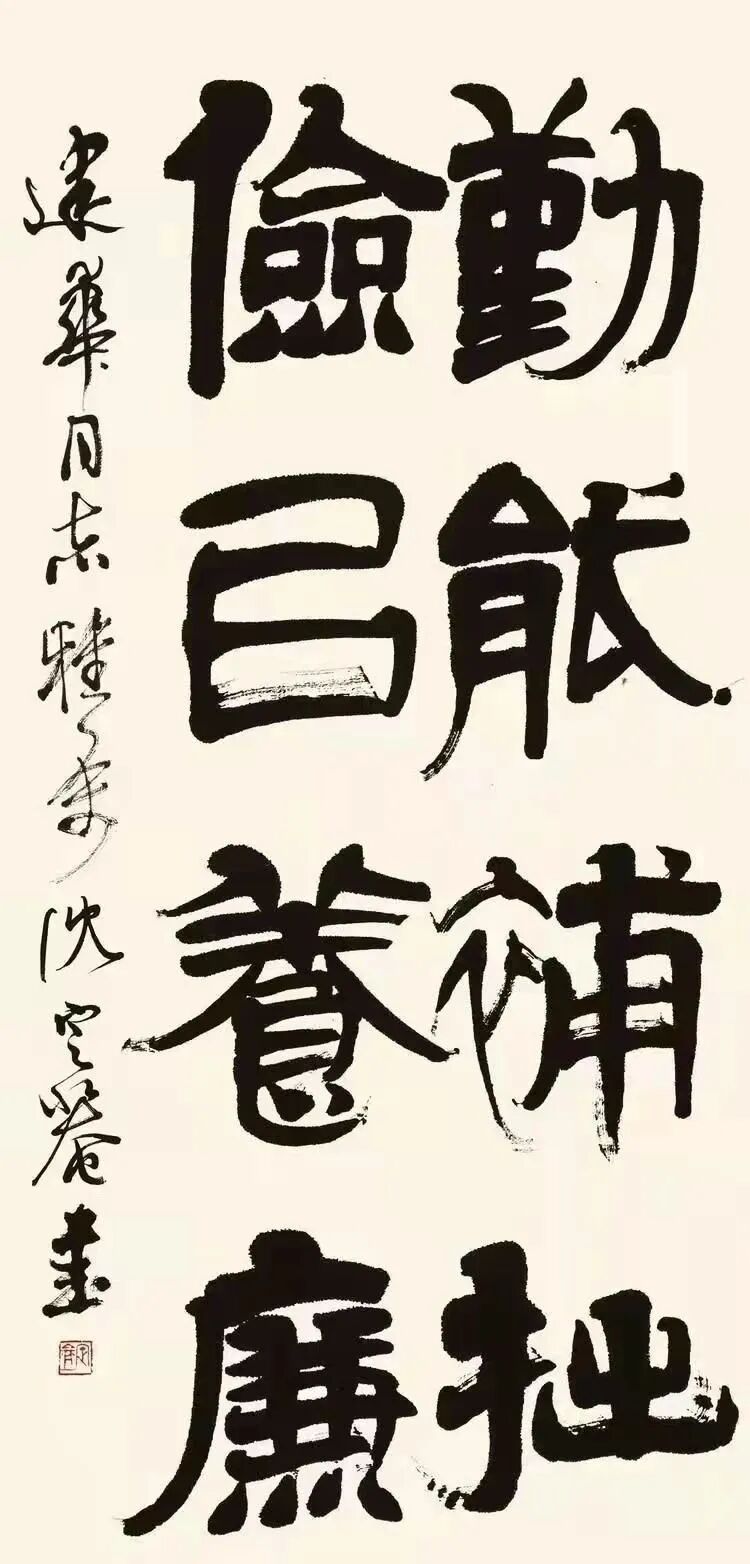 勤能補拙
儉㠯養廉
建華同志雅屬 沈定庵書